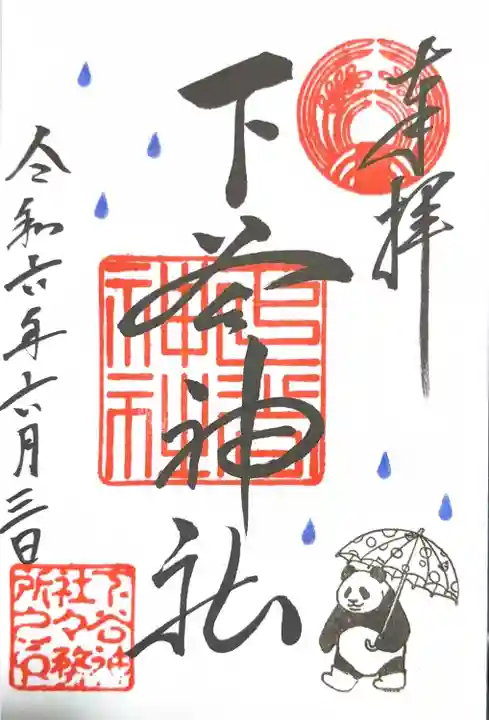 奉拝
下谷神社
下谷
神社
令和六年六月三日
下谷神
社々務
所之印